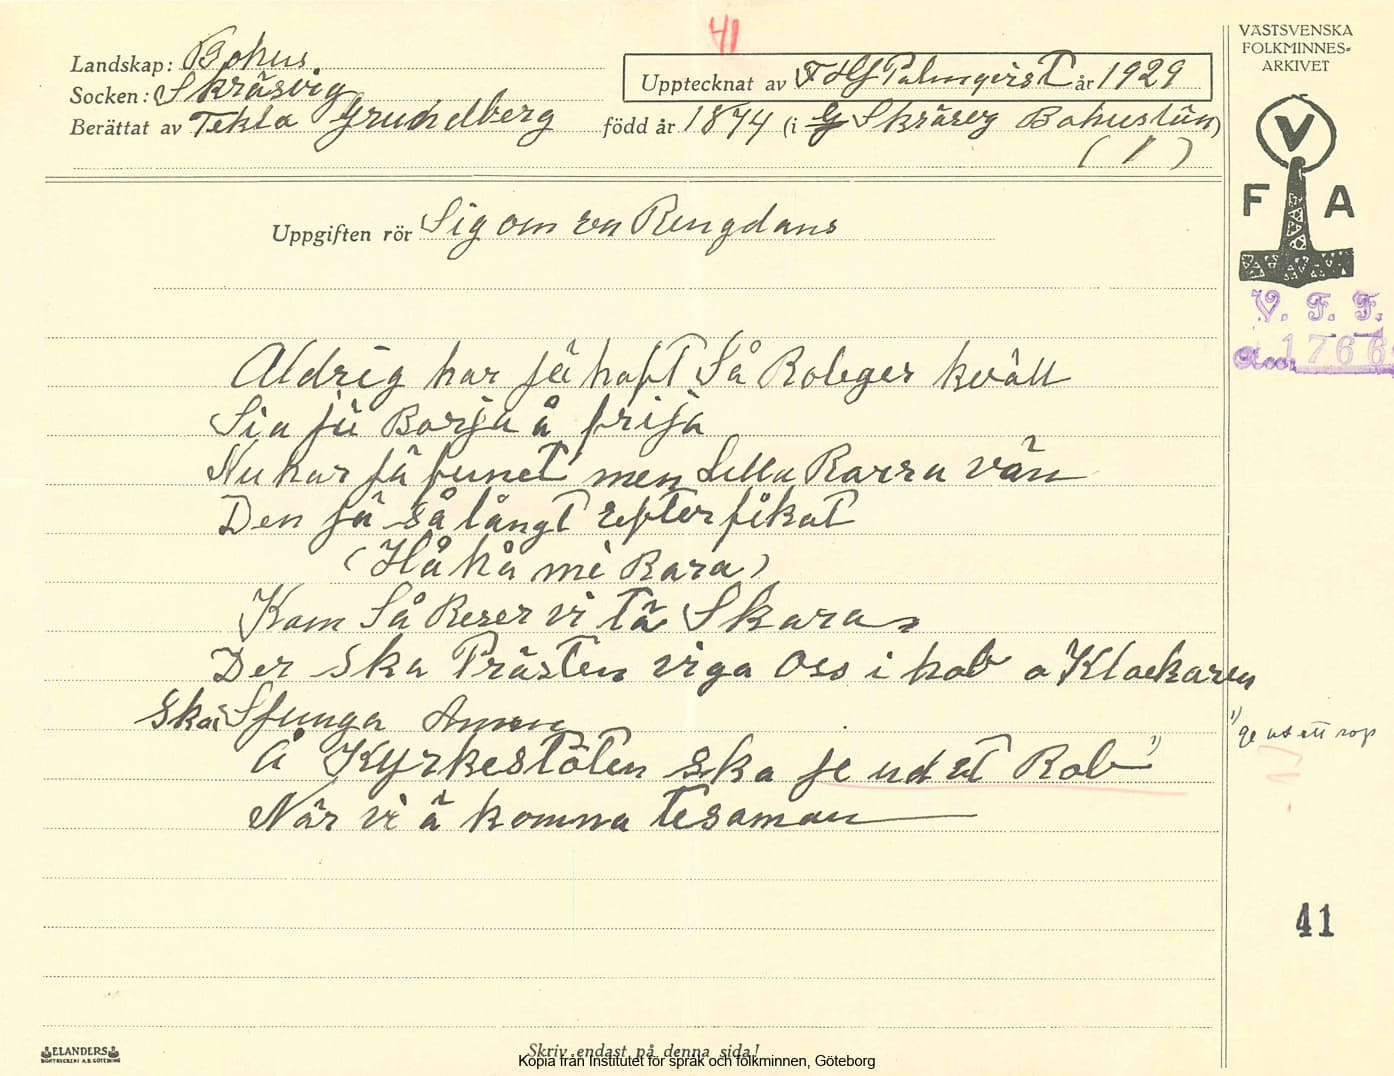 41
VÄSTSVENSKA
FOLKMINNES=
ARKIVET
Landskap: Bohus
Socken: Skräsvig
Upptecknat av F H G Palmqvist år 1929
Berättat av Tekla Grundelberg född år 1874 (i Skräsvg Bohuslän)
(1)
V
F A
Uppgiften rör Sig om en Ringdans
V. F. F.
1766
Aldrig har jä haft Så Roleger kväll
Sia jä Borja å frija
Nu har jä funet men Lilla Rarra vän
Den jä så långt efter fikat
(Hå hå mi Rara)
Kom Så Reser vi tä Skara
Der ska Prästen viga Oss i hob o Klockaren
Ska Sjunga Amen
Å Kyrkestöten ska je ud et Rob 1)
1) ge ut ett rop
När vi ä komna tesaman
41
ELANDERS
BOKTRYCKERI A.B. GÖTEBORG
Skriv endast på denna sida!
Kopia från Institutet för språk och folkminnen, Göteborg